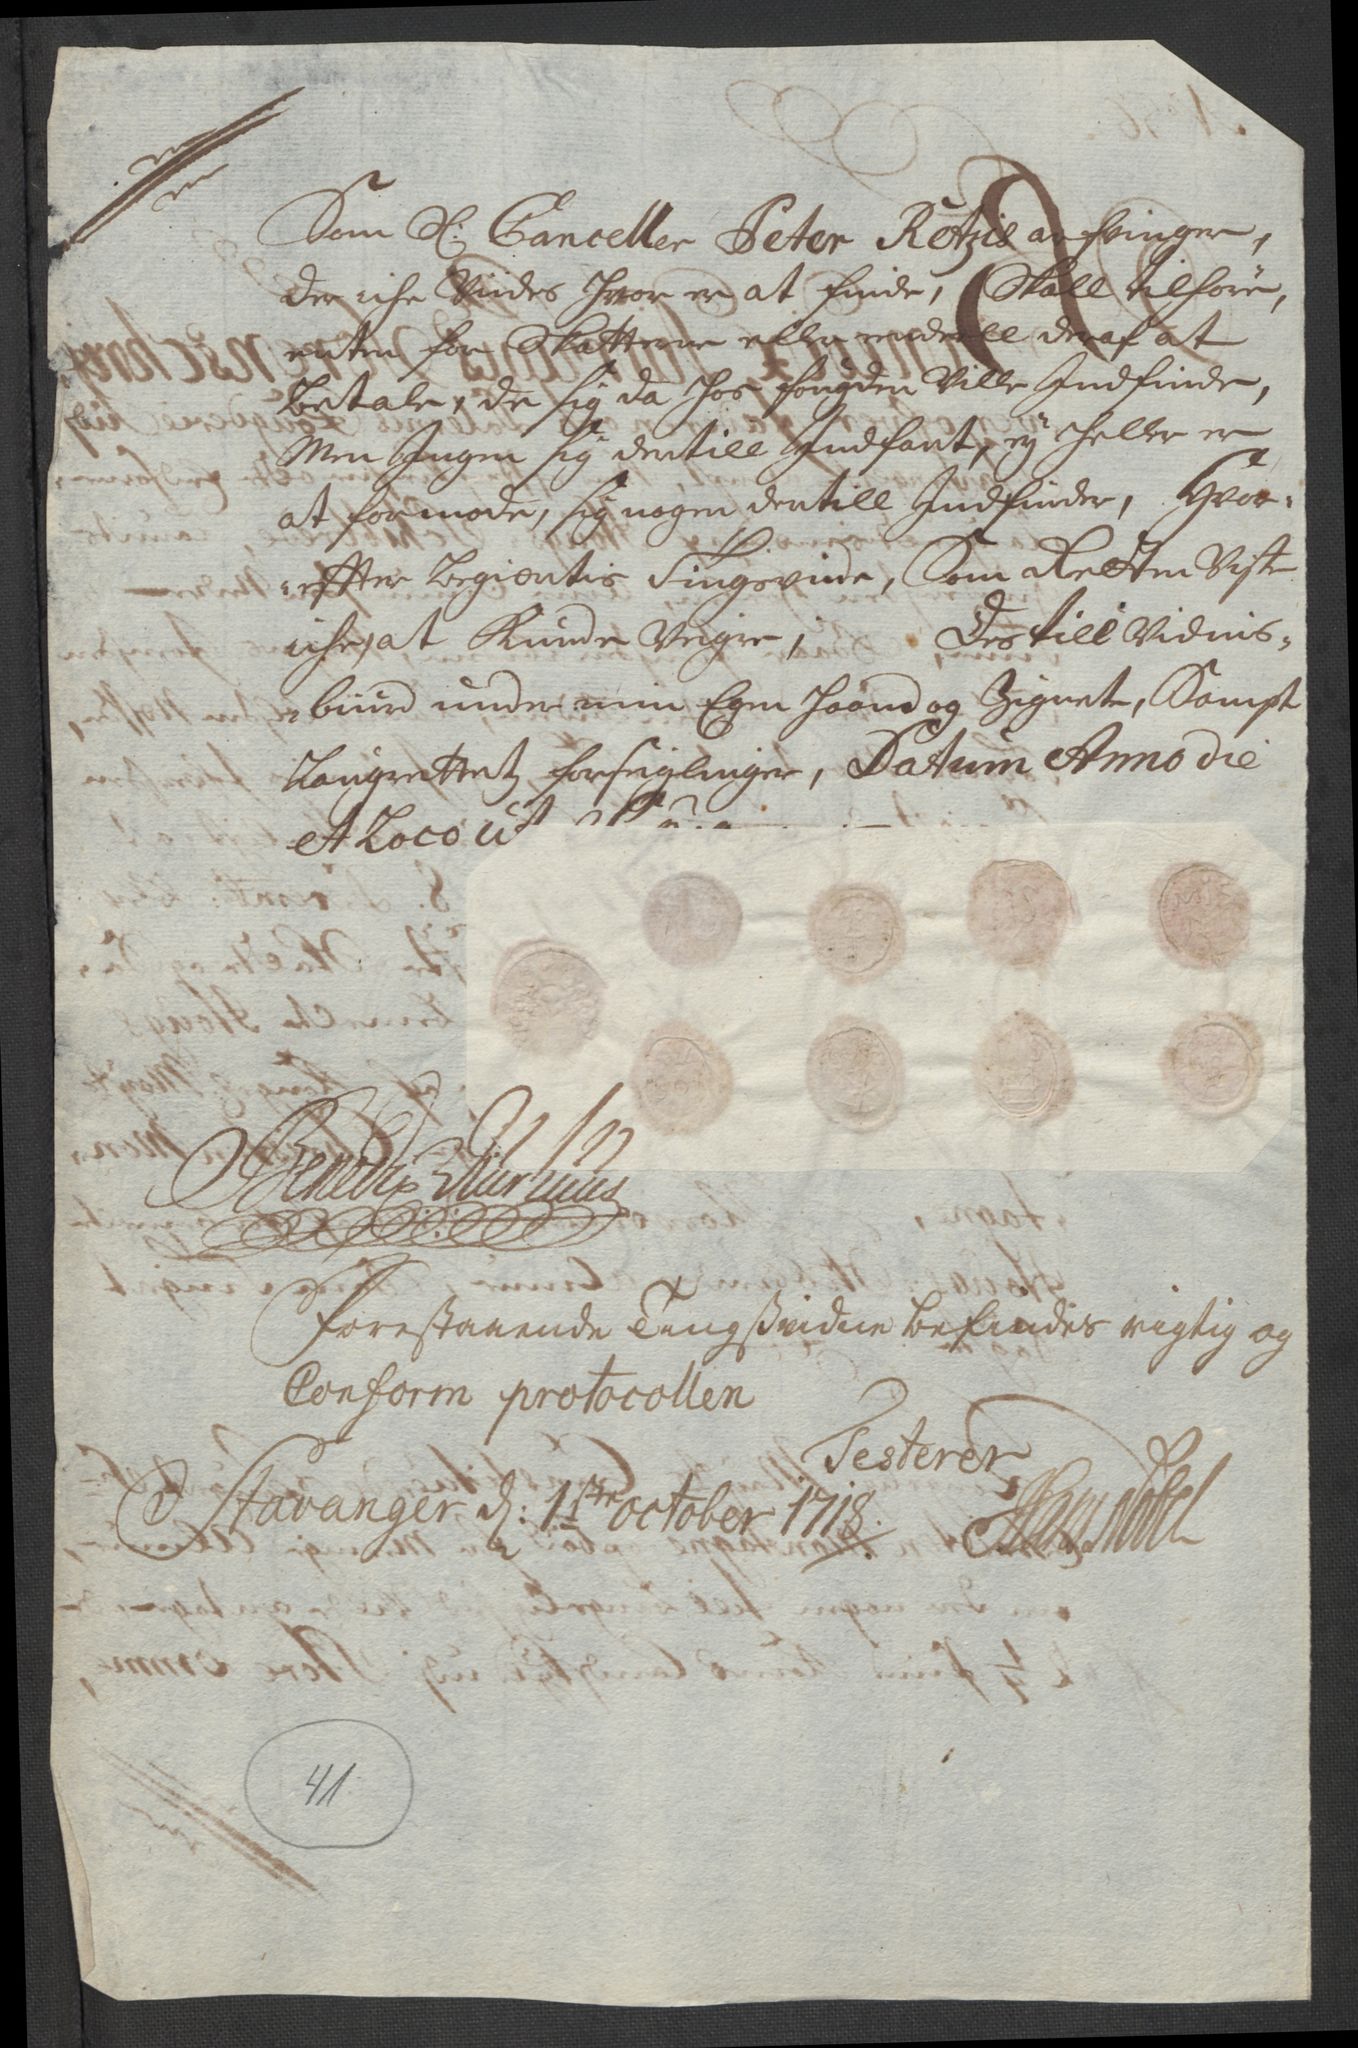 Som Sl: Canceller Peter Retzis arfvinger,
der iche Viides hvor er at finde, Skall tilhøre,
enten for Skatterne eller endeell deraf at
betale, de sig da hos fougden Ville Indfinde,
Men Ingen sig dertill Indfant, ey heller er
at formode, sig nogen dertill Indfinder, Hvor-
-effter begiertis Tingsvinde, Som Retten Viste
iche, at Kunde Veigre, Des till Vidnis-
-biurd under min Egen haand og Zignete, Sampt
Laugrettetz forseiglinger, Datum Anno die
et Loco ut
Benedix
Forestaaende Tingßvidne befindes rigtig og
Conform protocollen
Testerer
Stavanger d: 1ste october 1718.
Hans Nobel
41